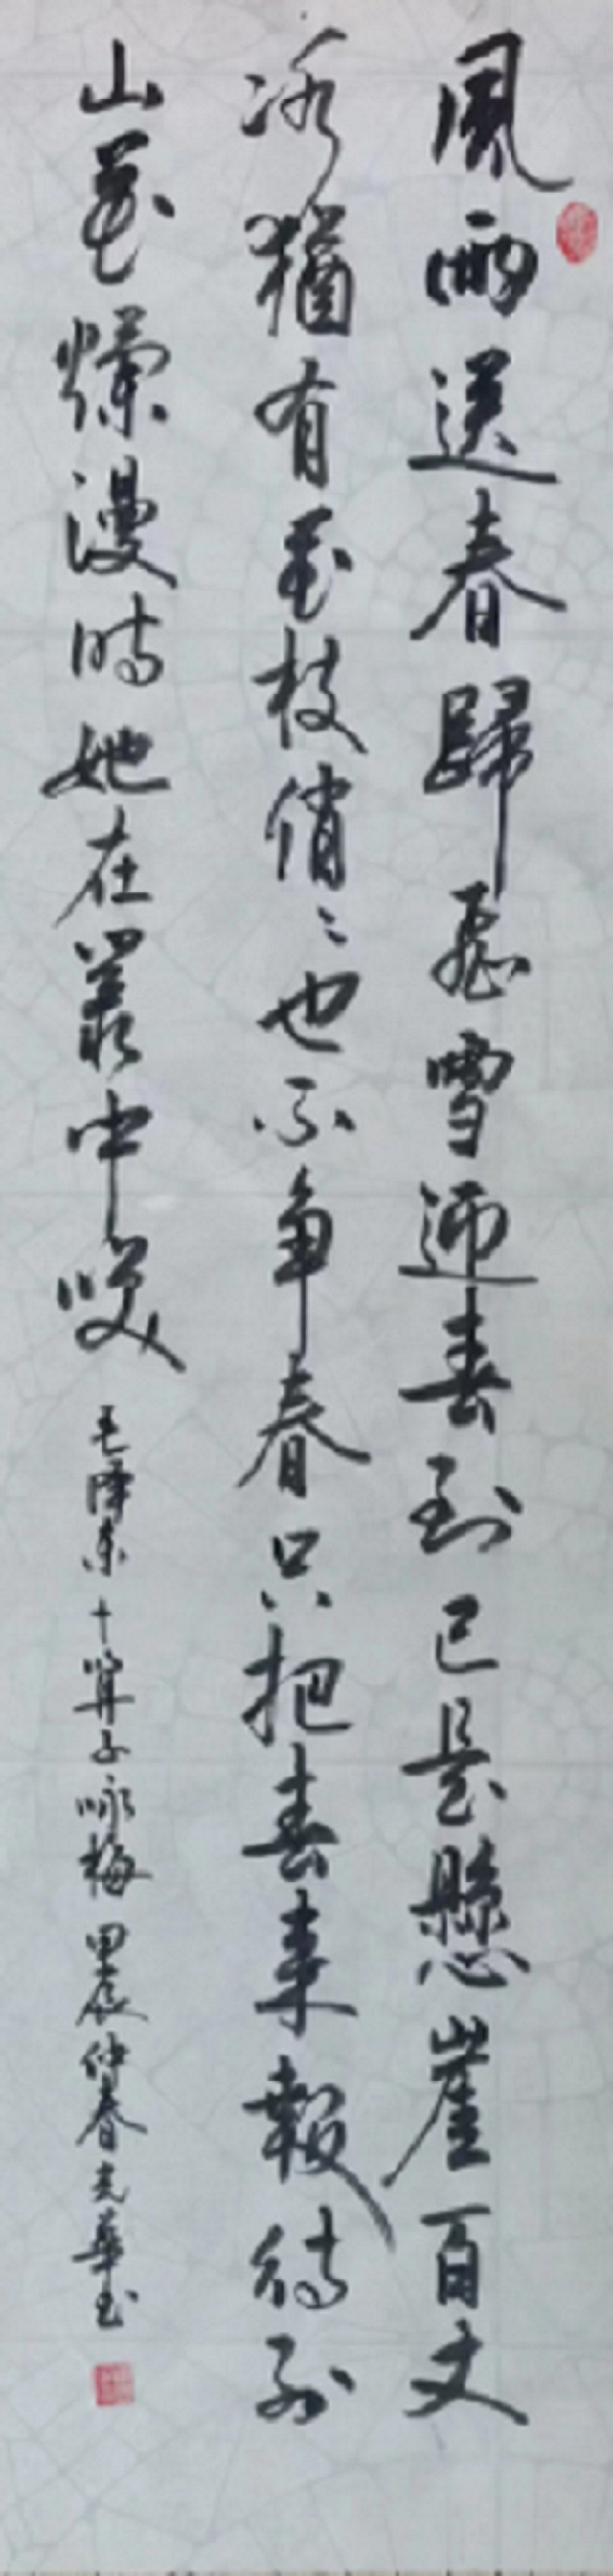 風雨送春歸飛雪迎春到已是懸崖百丈
冰猶有花枝俏〻也不争春只把春来報待到
山花爛漫時她在叢中咲 毛泽东卜算子咏梅 甲辰仲春光華书